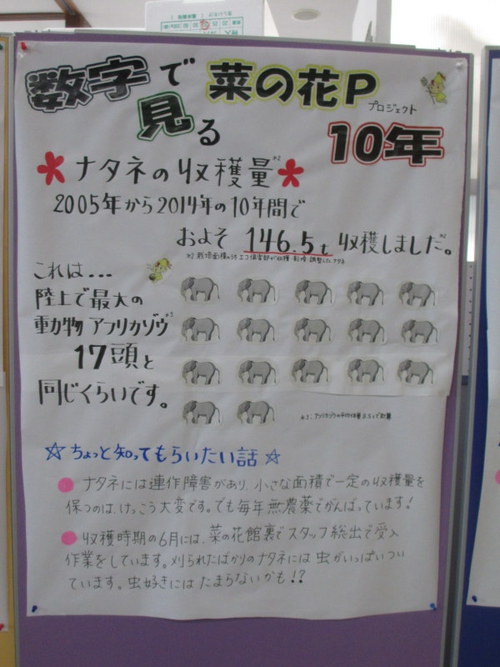 数字で 菜の花P
プロジェクト
見る 10年
ナタネの収穫量
2005年から2014年の10年間で
およそ 146.5t 収穫しました。
これは...
陸上で最大の
動物アフリカゾウ
17頭と
同じくらいです。
☆ちょっと知ってもらいたい話☆
ナタネには連作障害があり、小さな面積で一定の収穫量を
保つのは、けっこう大変です。でも毎年無農薬でがんばっています!
収穫時期の6月には、菜の花館裏でスタッフ総出で受入
作業をしています。刈られたばかりのナタネには虫がいっぱいつい
ています。虫好きにはたまらないかも!?